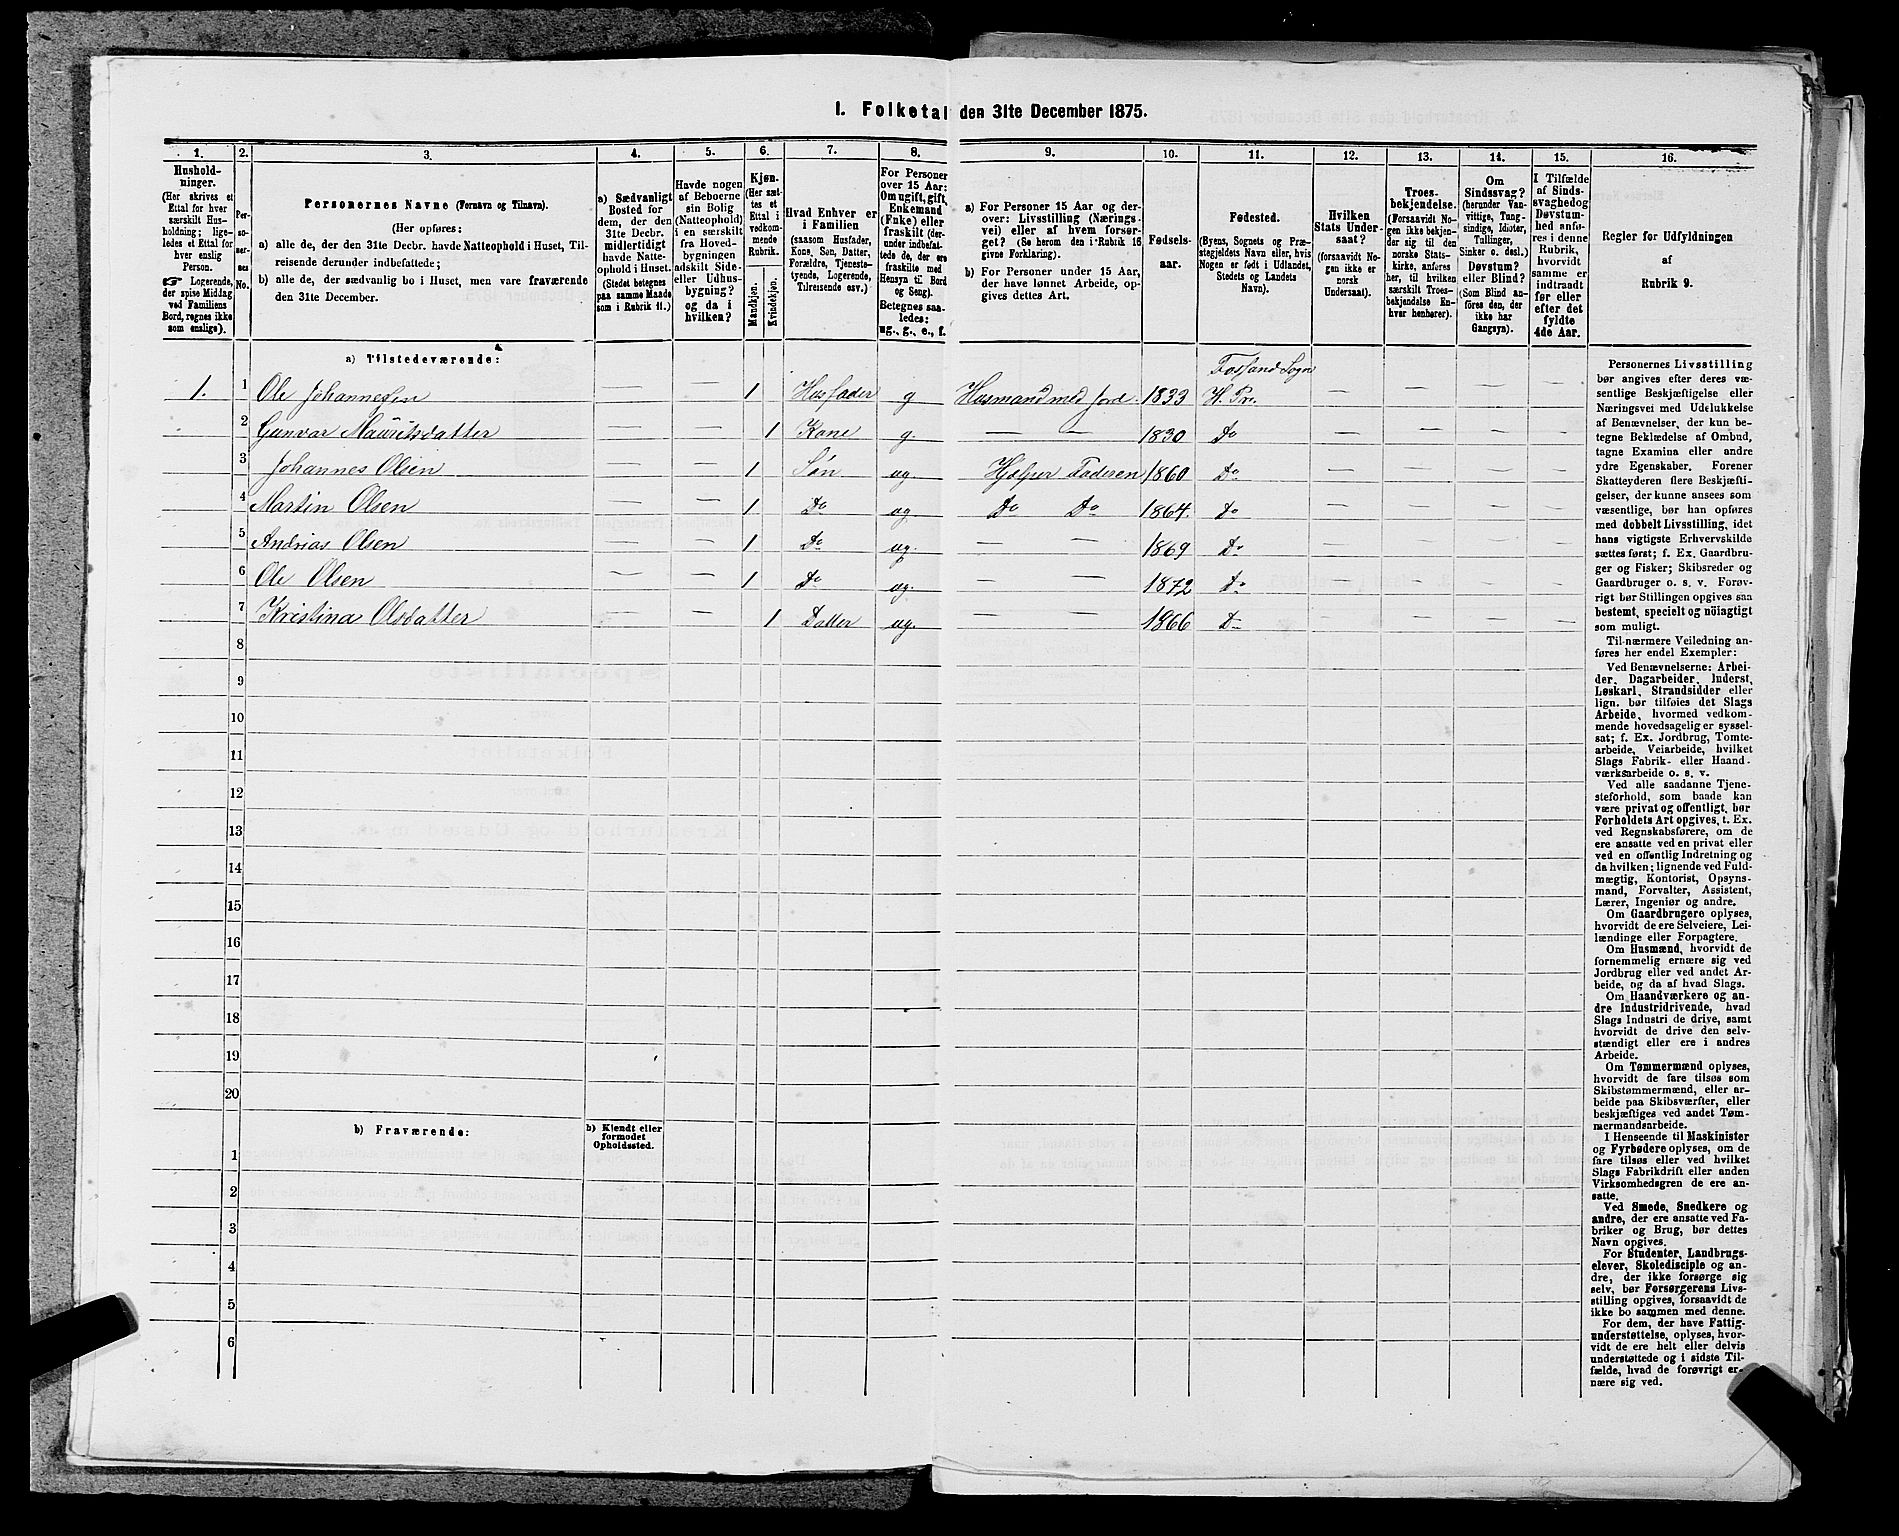 1. Folketal den 31te December 1875.
1. 2. 3. 4. 5. 6. 7. 8. 9. 10. 11. 12. 13. 14. 15. 16.
Hushold-
ninger.
(Her skrives et
Ettal for hver
særskilt Hus-
holdning; lige-
ledes et Ettal for
hver enslig
Person.
☞ Logerende,
der spise Middag
ved Familiens
Bord, regnes ikke
som enslige).
Per-
so-
ner-
nes
No.
Personernes Navne (Fornavn og Tilnavn).
(Her opføres:
a) alle de, der den 31te Decbr. havde Natteophold i Huset, Til-
reisende derunder indbefattede;
b) alle de, der sædvanlig bo i Huset, men vare fraværende
den 31te December.
a) Sædvanligt
Bosted for
dem, der den
31te Decbr.
midlertidigt
havde Natte-
ophold i Huset.
(Stedet betegnes
paa samme Maade
som i Rubrik 11.)
Havde nogen
af Beboerne
sin Bolig
(Natteophold)
i en særskilt
fra Hoved-
bygningen
adskilt Side-
eller Udhus-
bygning?
og da i
hvilken?
Kjøn.
(Her sæt-
tes et
Ettal i
vedkom-
mende
Rubrik.
Mandkjøn.
Kvindekjøn.
Hvad Enhver er
i Familien
(saasom Husfader,
Kone, Søn, Datter,
Forældre, Tjeneste-
tyende, Logerende,
Tilreisende osv.)
For Personer
over 15 Aar:
Om ugift, gift,
Enkemand
(Enke) eller
fraskilt (der-
under indbefat-
tede de, der ere
fraskilte med
Hensyn til Bord
og Seng).
Betegnes saa-
ledes:
ug., g., e., f.
a) For Personer 15 Aar og der-
over: Livsstilling (Nærings-
vei) eller af hvem forsør-
get? (Se herom den i Rubrik 16
givne Forklaring).
b) For Personer under 15 Aar,
der have lønnet Arbeide, op-
gives dettes Art.
Fødsels-
aar.
Fødested.
(Byens, Sognets og Præ-
stegjeldets Navn eller, hvis
Nogen er født i Udlandet,
Stedets og Landets
Navn).
Hvilken
Stats Under-
saat?
(forsaavidt No-
gen ikke er
norsk
Undersaat).
Troes-
bekjendelse.
(Forsaavidt No-
gen ikke bekjen-
der sig til den
norske Stats-
kirke, anføres
her, til hvilken
særskilt Troes-
bekjendelse En-
hver henhører).
Om
Sindssvag?
(herunder Van-
vittige, Tung-
sindige, Idioter,
Tullinger,
Sinker o. desl.).
Døvstum?
eller Blind?
(Som Blind an-
føres den, der
ikke har
Gangsyn).
I Tilfælde
af Sinds-
svaghed og
Døvstum-
hed anfø-
res i denne
Rubrik,
hvorvidt
samme er
indtraadt
før eller
efter det
fyldte
4de Aar.
Regler for Udfyldningen
af
Rubrik 9.
a) Tilstedeværende:
Forsand Sogn
1. 1 Ole Johannesen — — 1 Husfader g Husmand med Jord. 1833 H. Pr. — — — —
2 Gunvar Mauritsdatter — — 1 Kone g. — — 1830 Do — — — —
3 Johannes Olsen — — 1 Søn ug. Hjelper Faderen 1860 Do — — — —
4 Martin Olsen — — 1 Do ug Do Do 1864. Do — — — —
5 Andrias Olsen — — 1 Do ug. — — 1869 Do — — — —
6 Ole Olsen — — 1 Do ug. — — 1872 Do — — — —
7 Kristina Olsdatter — — 1 Datter ug. — — 1866 Do — — — —
8
9
10
11
12
13
14
15
16
17
18
19
20
b) Fraværende:
b) Kjendt eller
formodet
Opholdssted.
1
2
3
4
5
6
Personernes Livsstilling
bør angives efter deres væ-
sentlige Beskjæftigelse eller
Næringsvei med Udelukkelse
af Benævnelser, der kun be-
tegne Beklædelse af Ombud,
tagne Examina eller andre
ydre Egenskaber. Forener
Skatteyderen flere Beskjæfti-
gelser, der kunne ansees som
væsentlige, bør han opføres
med dobbelt Livsstilling, idet
hans vigtigste Erhvervskilde
sættes først; f. Ex. Gaardbru-
ger og Fisker; Skibsreder og
Gaardbruger o. s. v. Forøv-
rigt bør Stillingen opgives saa
bestemt, specielt og nöiagtigt
som muligt.
Til nærmere Veiledning an-
føres her endel Exempler:
Ved Benævnelserne: Arbei-
der, Dagarbeider, Inderst,
Løskarl, Strandsidder eller
lign. bør tilføies det Slags
Arbeide, hvormed vedkom-
mende hovedsagelig er syssel-
sat; f. Ex. Jordbrug, Tomte-
arbeide, Veiarbeide, hvilket
Slags Fabrik- eller Haand-
værksarbeide o. s. v.
Ved alle saadanne Tjene-
steforhold, som baade kan
være privat og offentligt, bør
Forholdets Art opgives, t. Ex.
ved Regnskabsførere, om de
ere ansatte ved en privat eller
ved en offentlig Indretning og
da hvilken; lignende ved Fuld-
mægtig, Kontorist, Opsyns-
mand, Forvalter, Assistent,
Lærer, Ingeniør og andre.
Om Gaardbrugere oplyses,
hvorvidt de ere Selveiere, Lei-
lændinge eller Forpagtere.
Om Husmænd, hvorvidt de
fornemmelig ernære sig ved
Jordbrug eller ved andet Ar-
beide, og da af hvad Slags.
Om Haandværkere og an-
dre Industridrivende, hvad
Slags Industri de drive, samt
hvorvidt de drive den selv-
stændigt eller ere i andres
Arbeide.
Om Tømmermænd oplyses,
hvorvidt de fare tilsøs som
Skibstømmermænd, eller ar-
beide paa Skibsværfter, eller
beskjæftiges ved andet Tøm-
mermandsarbeide.
I Henseende til Maskinister
og Fyrbødere oplyses, om de
fare tilsøs eller ved hvilket
Slags Fabrikdrift eller anden
Virksomhedsgren de ere an-
satte.
Ved Smede, Snedkere og
andre, der ere ansatte ved Fa-
briker og Brug, bør dettes
Navn opgives.
For Studenter, Landbrugs-
elever, Skoledisciple og an-
dre, der ikke forsørge sig
selv, bør Forsørgerens Livs-
stilling opgives, forsaavidt de
ikke bo sammen med denne.
For dem, der have Fattig-
understøttelse, oplyses, hvor-
vidt de ere helt eller delvis
understøttede og i sidste Til-
fælde, hvad de forøvrigt er-
nære sig ved.